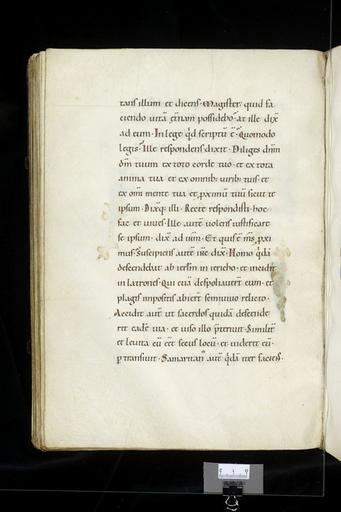 tans illum et dicens. Magister quid fa
ciendo uitā ęt̄nam possidebo. at ille dix̄
ad eum. In lege qd̄ scriptū ē. Quomodo
legis. Ille respondens dixit. Diliges dn̄m
dm̄ tuum ex toto corde tuo. et ex tota
anima tua et ex omnib; uirib; tuis et
ex om̄i mente tua et p̱ximū tuū sicut te
ipsum. Dixq; illi. Recte respondisti. hoc
fac et uiues. Ille autē uolens iustificare
se ipsum. dix̄ ad ihm̄. Et quis ē m̄s p̱xi
mus. Suscipiens autē ih̄c dix̄. Homo qdā
descendebat ab ierlm̄ in iericho. et incidit
in latrones. Qui etiā despoliauert̄ eum. et
plagis impositis abiert̄ semiuiuo relicto.
Accidit aut̄ ut sacerdos quidā descende
ret eadē uia. et uiso illo p̄teriuit. Similit̄
et leuita cū eēt secus locū. et uideret eū.
p̱transiuit. Samaritan⁹ aut̄ qdā iter faciens.